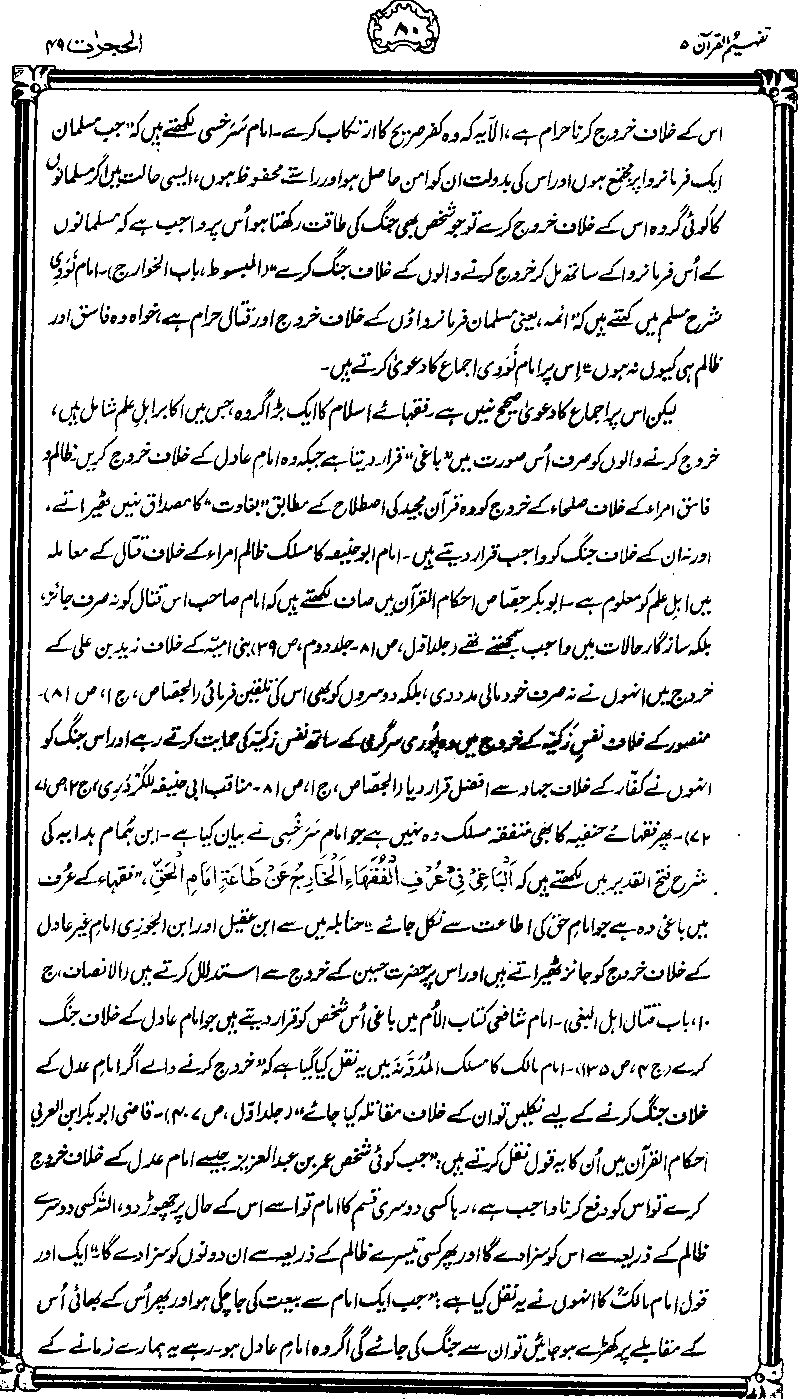 تفہیم القرآن ۵
۸۰
الحجرات ۴۹
اس کے خلاف خروج کرنا حرام ہے، الا یہ کہ وہ کفر صریح کا ارتکاب کرے۔ امام سَرَخسی لکھتے ہیں کہ "جب مسلمان
ایک فرمانروا پر مجتمع ہوں اور اس کی بدولت ان کو امن حاصل ہو اور راستے محفوظ ہوں، ایسی حالت میں اگر مسلمانوں
کا کوئی گروہ اس کے خلاف خروج کرے تو جو شخص بھی جنگ کی طاقت رکھتا ہو اُس پر واجب ہے کہ مسلمانوں
کے اُس فرمانروا کے ساتھ مل کر خروج کرنے والوں کے خلاف جنگ کرے" (المبسوط، باب الخوارج)۔ امام نَوَوِی
شرح مسلم میں کہتے ہیں کہ "ائمہ، یعنی مسلمان فرمانرواؤں کے خلاف خروج اور قتال حرام ہے، خواہ وہ فاسق اور
ظالم ہی کیوں نہ ہوں" اِس پر امام نَوَوی اجماع کا دعویٰ کرتے ہیں۔
لیکن اس پر اجماع کا دعویٰ صحیح نہیں ہے۔ فقہائے اسلام کا ایک بڑا گروہ، جس میں اکابر اہل علم شامل ہیں،
خروج کرنے والوں کو صرف اُس صورت میں "باغی" قرار دیتا ہے جبکہ وہ امامِ عادل کے خلاف خروج کریں۔ ظالم و
فاسق امراء کے خلاف صلحاء کے خروج کو وہ قرآن مجید کی اصطلاح کے مطابق "بغاوت" کا مصداق نہیں ٹھیراتے،
اور نہ ان کے خلاف جنگ کو واجب قرار دیتے ہیں۔ امام ابو حنیفہ کا مسلک ظالم امراء کے خلاف قتال کے معاملہ
میں اہل علم کو معلوم ہے۔ ابوبکر جصّاص احکام القرآن میں صاف لکھتے ہیں کہ امام صاحب اس قتال کو نہ صرف جائز،
بلکہ سازگار حالات میں واجب سمجھتے تھے (جلد اول، ص ۸۱۔ جلد دوم، ص ۳۹) بنی امیّہ کے خلاف زید بن علی کے
خروج میں انہوں نے نہ صرف خود مالی مدد دی، بلکہ دوسروں کو بھی اس کی تلقین فرمائی (الجصاص، ج ۱، ص ۸۱)۔
منصور کے خلاف نفسِ زَکیّہ کے خروج میں وہ پُوری سرگرمی کے ساتھ نفس زکیّہ کی حمایت کرتے رہے اور اس جنگ کو
انہوں نے کفّار کے خلاف جہاد سے افضل قرار دیا (الجصّاص، ج ۱، ص ۸۱۔ مناقب ابی حنیفہ للکَرْدَری، ج ۲، ص ۷۱
۷۲)۔ پھر فقہائے حنفیہ کا بھی متفقہ مسلک وہ نہیں ہے جو امام سَرَخْسِی نے بیان کیا ہے۔ ابن ہُمام ہدایہ کی
شرح فتح القدیر میں لکھتے ہیں کہ اَلْبَاغِیْ فِیْ عُرْفِ الْفُقَہَاءِ الْخَارِجُ عَنْ طَاعَۃِ اِمَامِ الْحَقِّ، "فقہاء کے عُرف
میں باغی وہ ہے جو امام حق کی اطاعت سے نکل جائے" حنابلہ میں سے ابن عقیل اور ابن الجوزی امامِ غیر عادل
کے خلاف خروج کو جائز ٹھیراتے ہیں اور اس پر حضرت حسین کے خروج سے استدلال کرتے ہیں (الانصاف، ج
۱۰، باب قتال اہل البغی)۔ امام شافعی کتاب الاُم میں باغی اُس شخص کو قرار دیتے ہیں جو امام عادل کے خلاف جنگ
کرے (ج ۴، ص ۱۳۵)۔ امام مالک کا مسلک المُدَوَّنَہ میں یہ نقل کیا گیا ہے کہ "خروج کرنے والے اگر امامِ عدل کے
خلاف جنگ کرنے کے لیے نکلیں تو ان کے خلاف مقاتلہ کیا جائے" (جلد اوّل، ص ۴۰۷)۔ قاضی ابوبکر ابن العربی
احکام القرآن میں اُن کا یہ قول نقل کرتے ہیں: "جب کوئی شخص عمر بن عبدالعزیز جیسے امام عدل کے خلاف خروج
کرے تو اس کو دفع کرنا واجب ہے، رہا کسی دوسری قسم کا امام تو اسے اس کے حال پر چھوڑ دو، اللہ کسی دوسرے
ظالم کے ذریعہ سے اس کو سزا دے گا اور پھر کسی تیسرے ظالم کے ذریعہ سے ان دونوں کو سزا دے گا" ایک اور
قول امام مالکؒ کا انہوں نے یہ نقل کیا ہے: "جب ایک امام سے بیعت کی جا چکی ہو اور پھر اُس کے بھائی اُس
کے مقابلے پر کھڑے ہو جائیں تو ان سے جنگ کی جائے گی اگر وہ امامِ عادل ہو۔ رہے یہ ہمارے زمانے کے